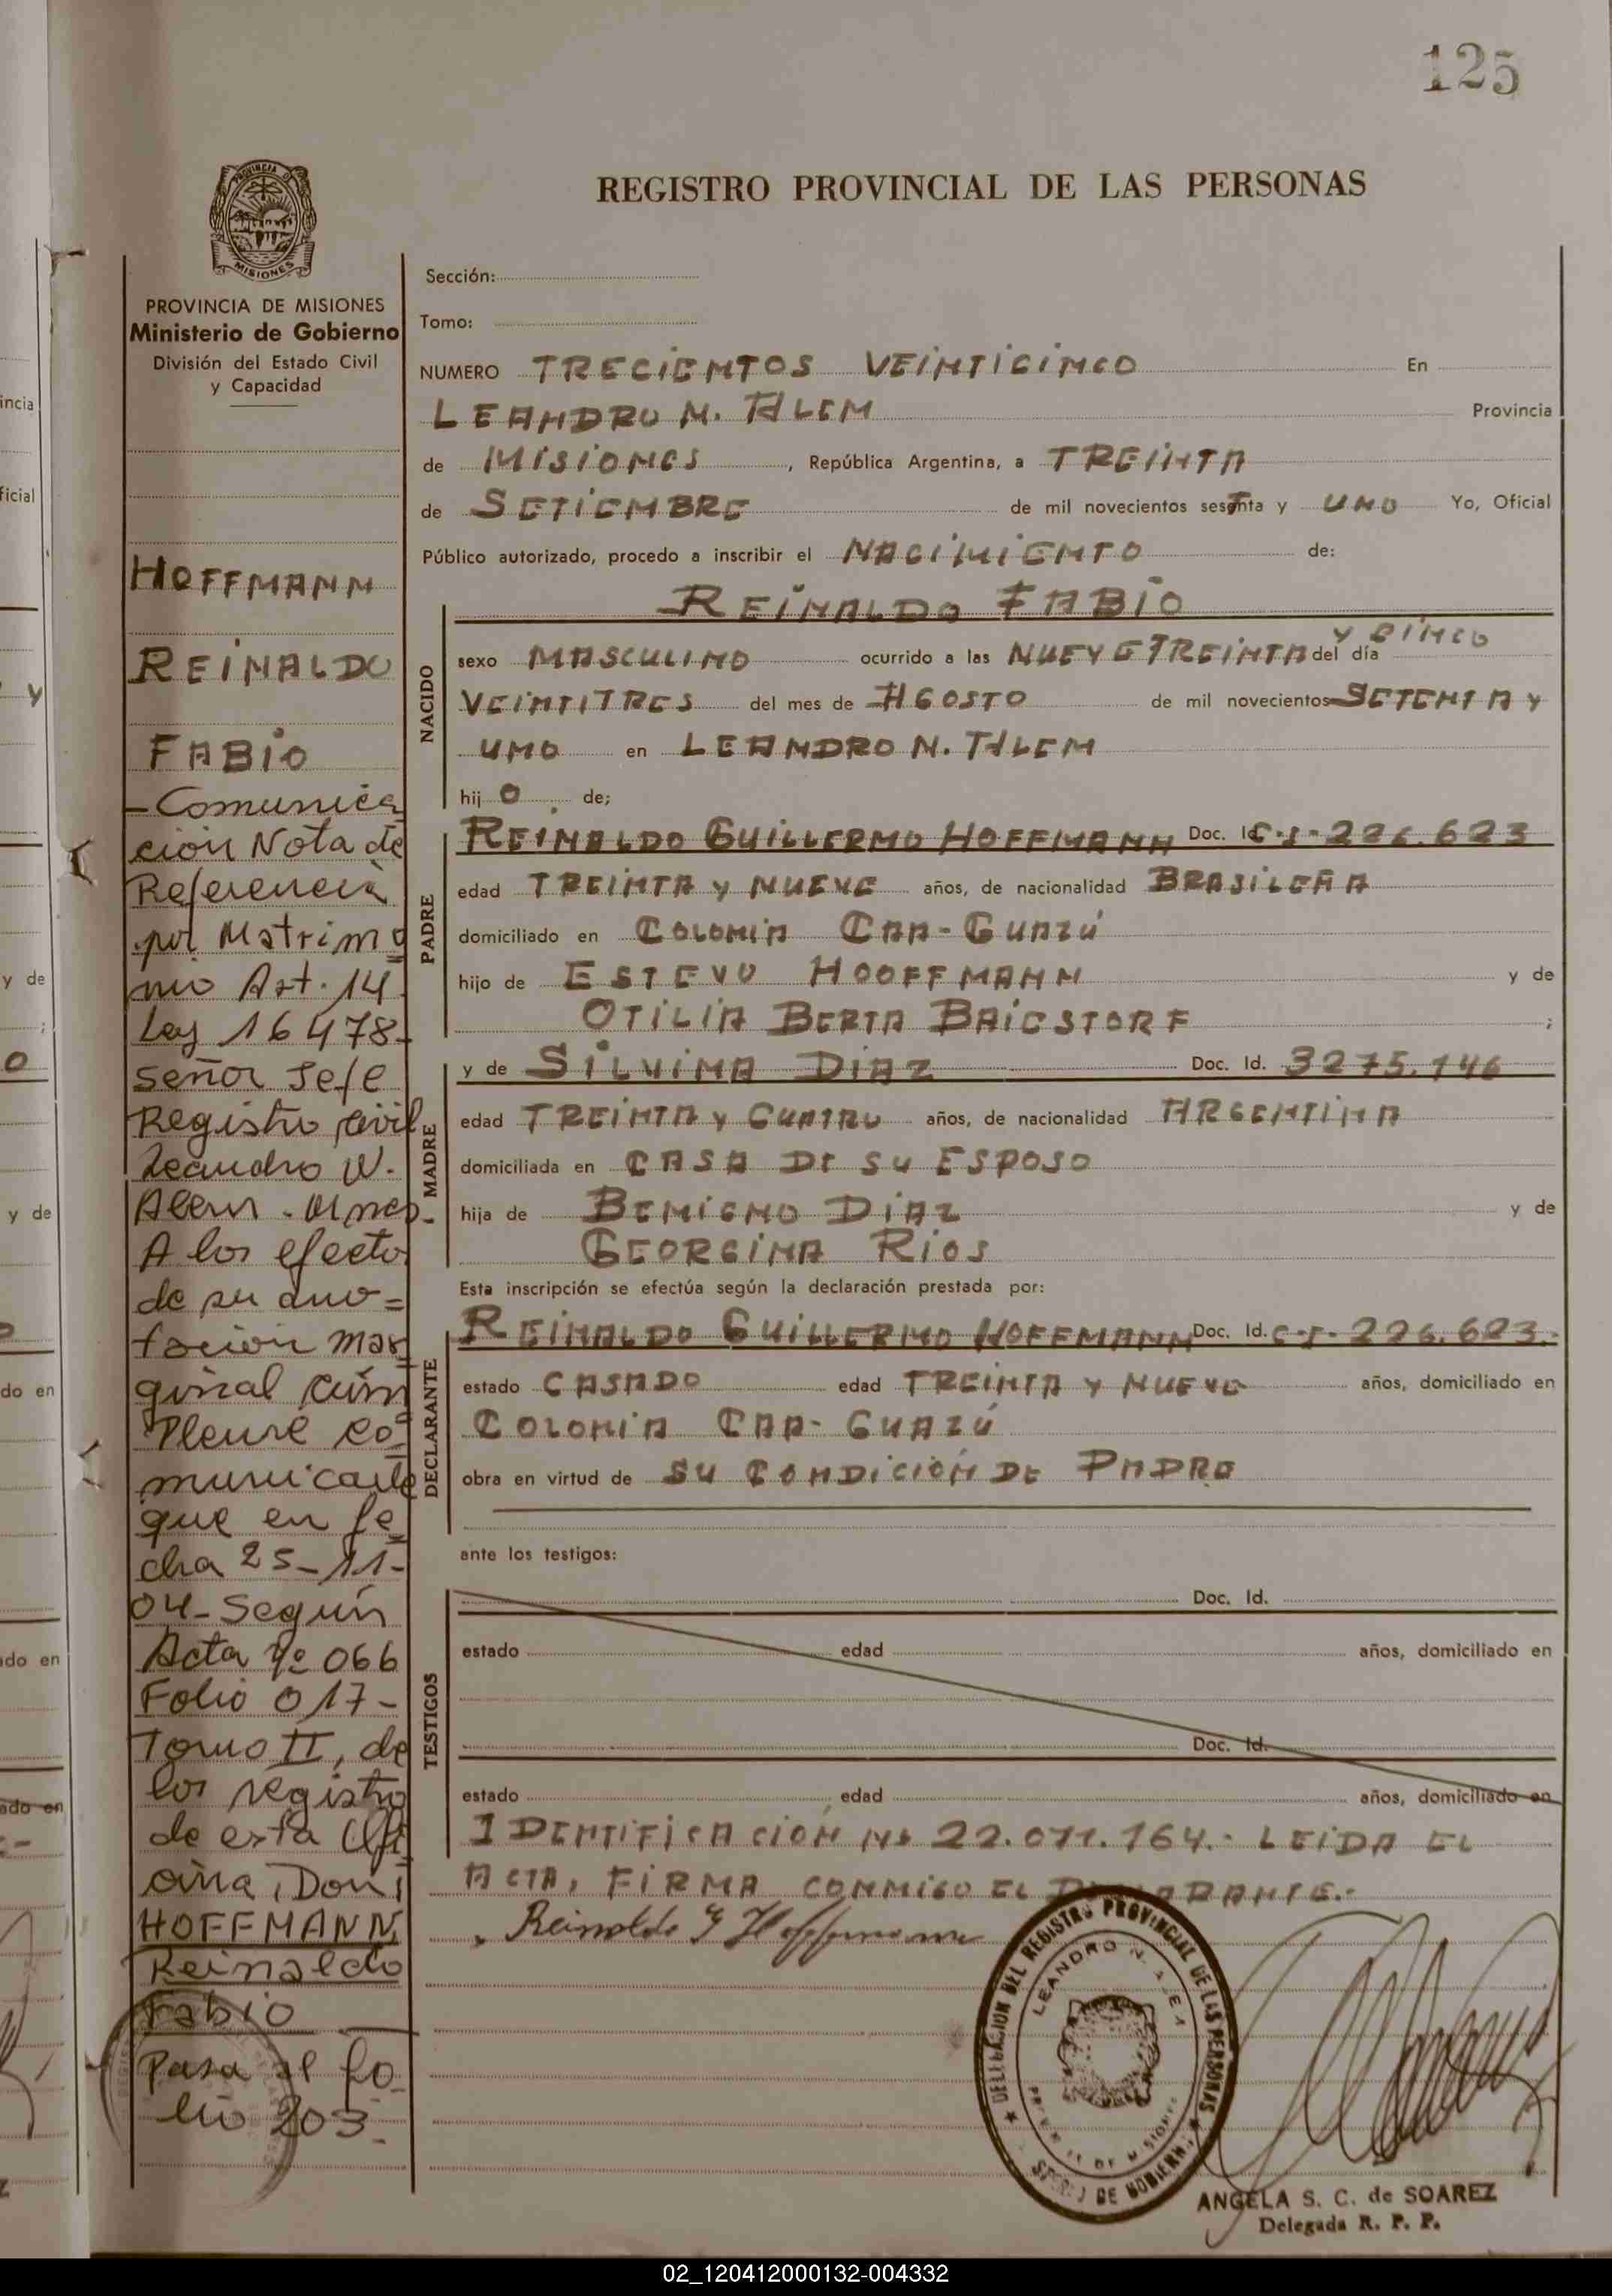 125
REGISTRO PROVINCIAL DE LAS PERSONAS
PROVINCIA DE MISIONES
Ministerio de Gobierno
División del Estado Civil
y Capacidad
HOFFMANN
REINALDO
FABIO
-Comunica
ción Nota de
Referencia
por Matrimo
nio Art. 14
Ley 16478-
Señor Jefe
Registro Civil
Leandro N.
Alem - Mnes.
A los efecto
de su ano=
tación mar
ginal cúm
pleme co
municarle
que en fe
cha 25-11-
04-Según
Acta Nº 066
Folio 017-
Tomo II, de
los registro
de esta Ofi
cina, Don:
HOFFMANN
Reinaldo
Fabio
Pasa al fo
lio 203-
Sección:
Tomo:
NUMERO TRECIENTOS VEINTICINCO En
LEANDRO N. ALEM Provincia
de MISIONES, República Argentina, a TREINTA
de SETIEMBRE de mil novecientos sesTnta y UNO Yo, Oficial
Público autorizado, procedo a inscribir el NACIMIENTO de:
REINALDO FABIO
NACIDO
y CINCO
sexo MASCULINO ocurrido a las NUEVE TREINTA del día
VEINTITRES del mes de AGOSTO de mil novecientos SETENTA Y
UNO en LEANDRO N. ALEM
hij O de;
PADRE
REINALDO GUILLERMO HOFFMANN Doc. Id. C-I-226.623
edad TREINTA Y NUEVE años, de nacionalidad BRASILEÑA
domiciliado en COLONIA CAA-GUAZÚ
hijo de ESTEVO HOOFFMANN y de
OTILIA BERTA BAICSTORF ;
MADRE
y de SILVINA DIAZ Doc. Id. 3275.146
edad TREINTA Y CUATRO años, de nacionalidad ARGENTINA
domiciliada en CASA DE SU ESPOSO
hija de BENIGNO DIAZ y de
GEORGINA RIOS
Esta inscripción se efectúa según la declaración prestada por:
DECLARANTE
REINALDO GUILLERMO HOFFMANN Doc. Id. C-I-226.623.
estado CASADO edad TREINTA Y NUEVE años, domiciliado en
COLONIA CAA-GUAZÚ
obra en virtud de SU CONDICIÓN DE PADRE
ante los testigos:
TESTIGOS
Doc. Id.
estado edad años, domiciliado en
Doc. Id.
estado edad años, domiciliado en
IDENTIFICACIÓN Nº 22.071.164.- LEIDA EL
ACTA, FIRMA CONMIGO EL DECLARANTE.-
Reinaldo G Hoffmann
DELEGACION DEL REGISTRO PROVINCIAL DE LAS PERSONAS
LEANDRO N. ALEM
DE MISIONES
DE GOBIERNO
ANGELA S. C. de SOAREZ
Delegada R. P. P.
02_120412000132-004332